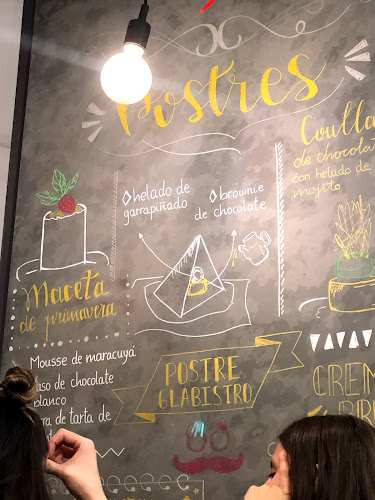 Postres
Coulla
de chocolat
con helado de
mojito
helado de
garrapiñado
brownie
de chocolate
Maceta
de primavera
Mousse de maracuyá
aso de chocolate
blanco
ra de tarta de
POSTRE
GLABISTRO
CREM